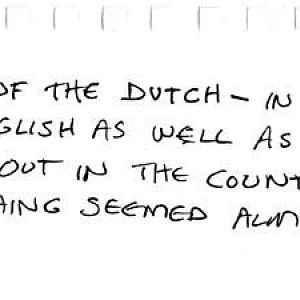 OF THE DUTCH – IN
GLISH AS WELL AS
OUT IN THE COUNT
ING SEEMED ALM